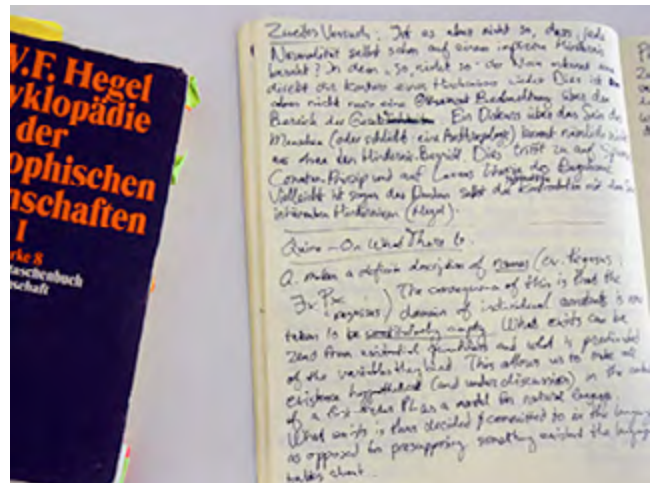 W.F. Hegel
yklopädie
der
ophischen
nschaften
I
rke 8
taschenbuch
nschaft
Zweiter Versuch: Ist es aber nicht so, dass jede
Normalität selbst schon auf einem Hindernis
beruht? In dem "so, nicht so" - der
direkt die Kontur eines Hindernisses wieder. Dies ist
aber nicht nur eine Beobachtung über den
Bereich der Ein Diskurs über das Sein des
Menschen (oder schlicht: eine Anthropologie) kommt nämlich nicht
aus ohne den Hindernis-Begriff. Dies trifft zu auf
Conatus-Prinzip und auf Lacans des Begehrens.
Vielleicht ist sogar das Denken selbst die Konfrontation mit dem
Hindernissen (Hegel).
Quine - On What There Is.
Q. makes a definite description of names (ex. Pegasus:
∃x Px
pegasus) The consequence of this is that the
domain of individual constants is now
taken to be empty. What exists can be
read from existential quantifiers and what is predicated
of the variables they bind. This allows us to make all
existence hypothetical (and under discussion), in the
of a first order PL as a model for natural language.
What exists is thus decided & committed to in the language
as opposed to presupposing something existed the language
talks about.